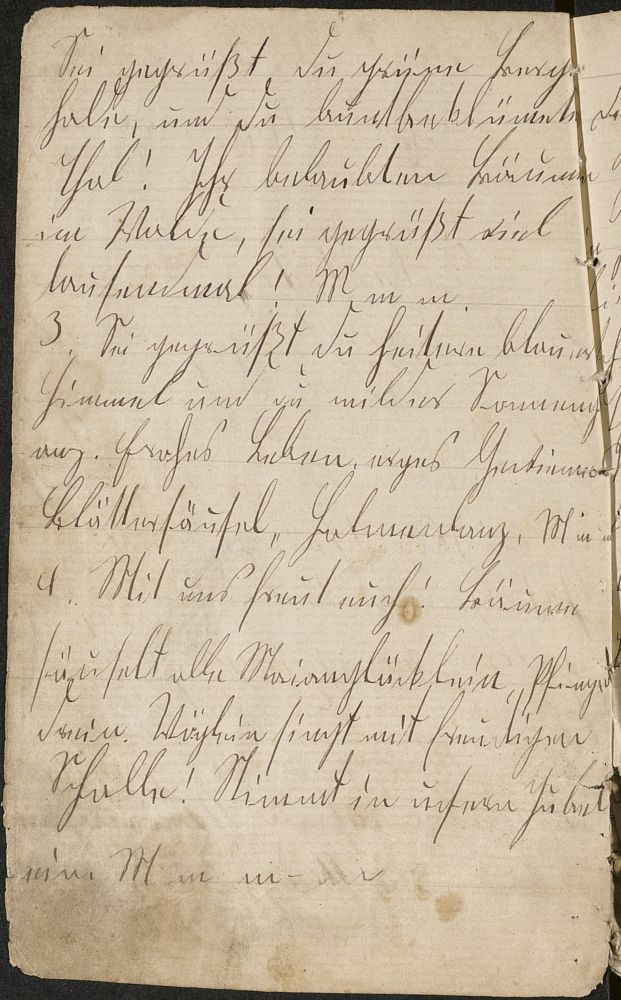 Sei gegrüßt du grüne Berges
halde, und du buntbeblümte
Thal! Ihr belaubten Bäume
im Walde, sei gegrüßt viel
tausendmal! M m m.
3. Sei gegrüßt du heitere blauer
Himmel und du milder Sonneng
anz. Frohes Leben,
Blätter säusel, Halmentanz, M m m
4. Mit uns freut euch! Bäume
säuselt alle Maienglöcklein,
drein. Vöglein singt mit freudigen
Schalle! Stimmt in unsern Jubel
ein. M m m -